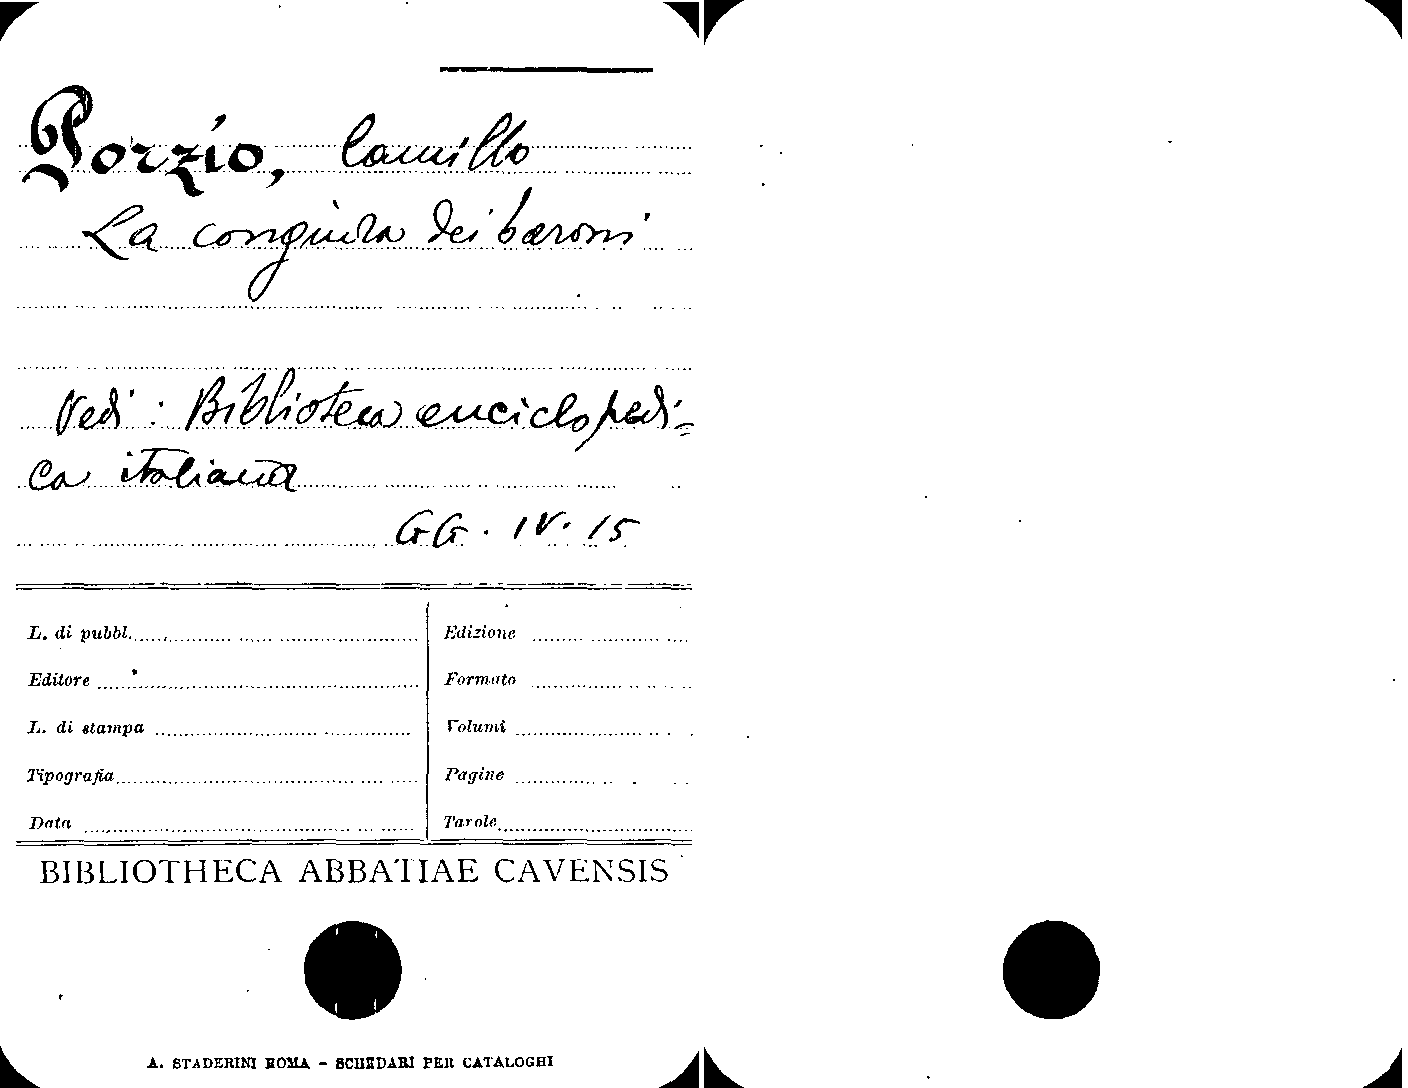 Porzio, Camillo
La congiura dei baroni
Vedi: Biblioteca enciclopedi=
ca italiana
GG. IV. 15
L. di pubbl.
Editore
L. di stampa
Tipografia
Data
Edizione
Formato
Volumi
Pagine
Tavole
BIBLIOTHECA ABBATIAE CAVENSIS
A. STADERINI ROMA - SCHEDARI PER CATALOGHI